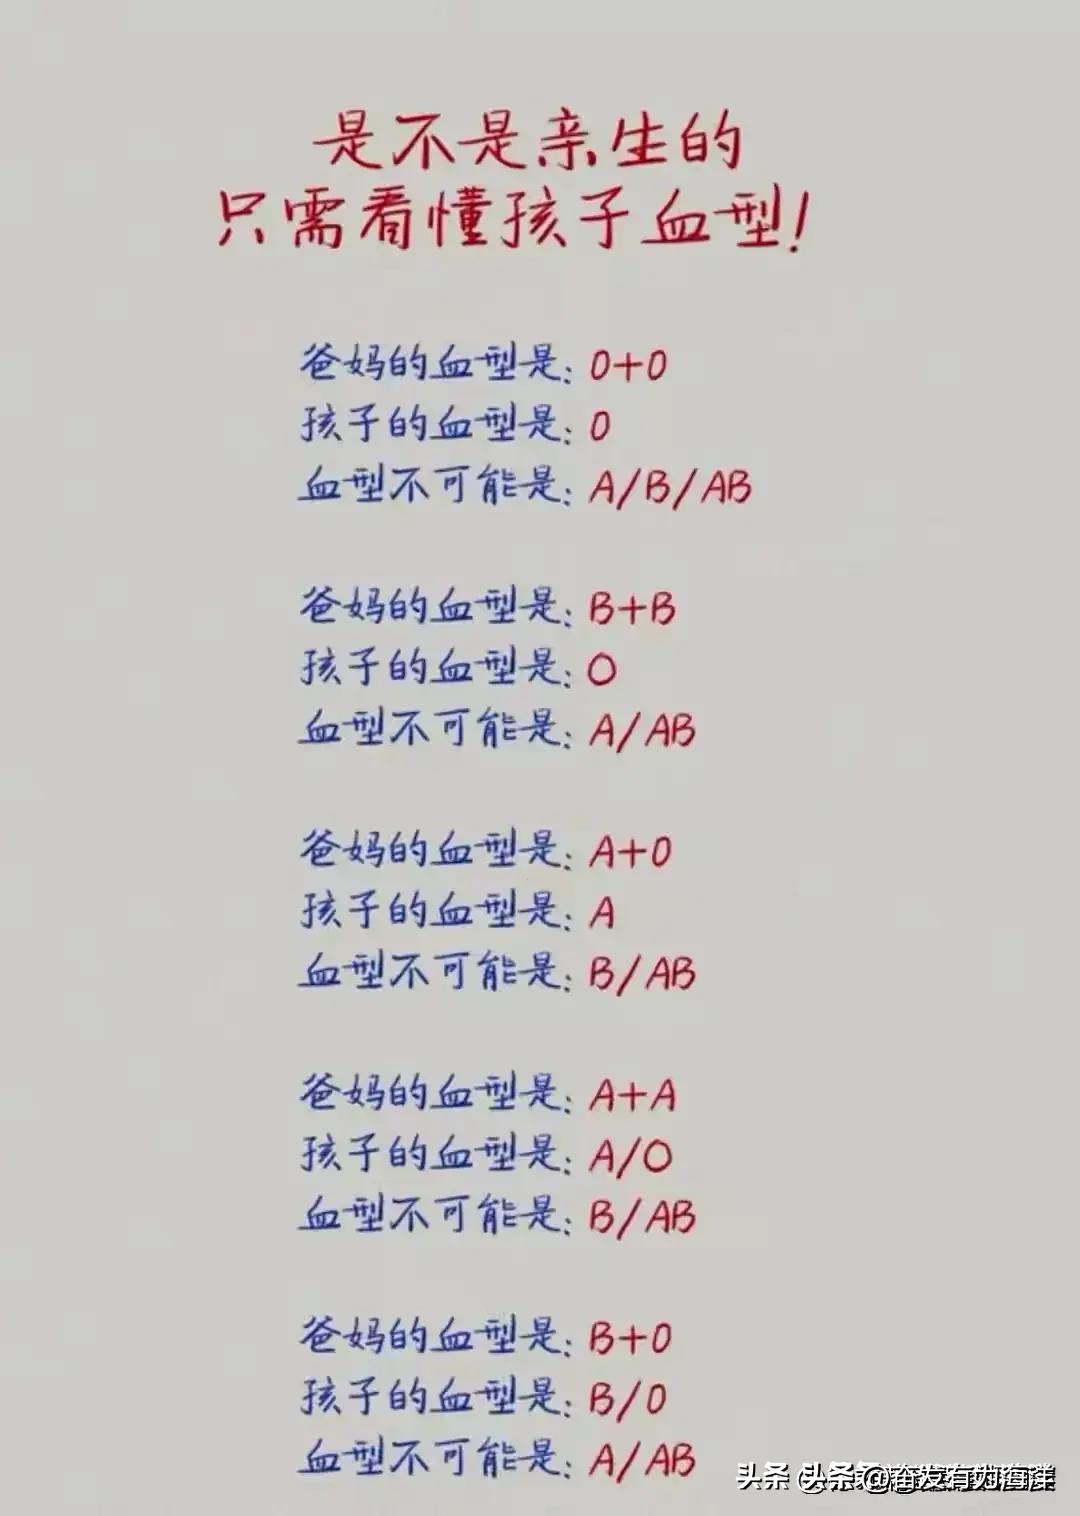 是不是亲生的
只需看懂孩子血型!
爸妈的血型是: O+O
孩子的血型是: O
血型不可能是: A/B/AB
爸妈的血型是: B+B
孩子的血型是: O
血型不可能是: A/AB
爸妈的血型是: A+O
孩子的血型是: A
血型不可能是: B/AB
爸妈的血型是: A+A
孩子的血型是: A/O
血型不可能是: B/AB
爸妈的血型是: B+O
孩子的血型是: B/O
血型不可能是: A/AB
头条 头条 @奋发有为海洋